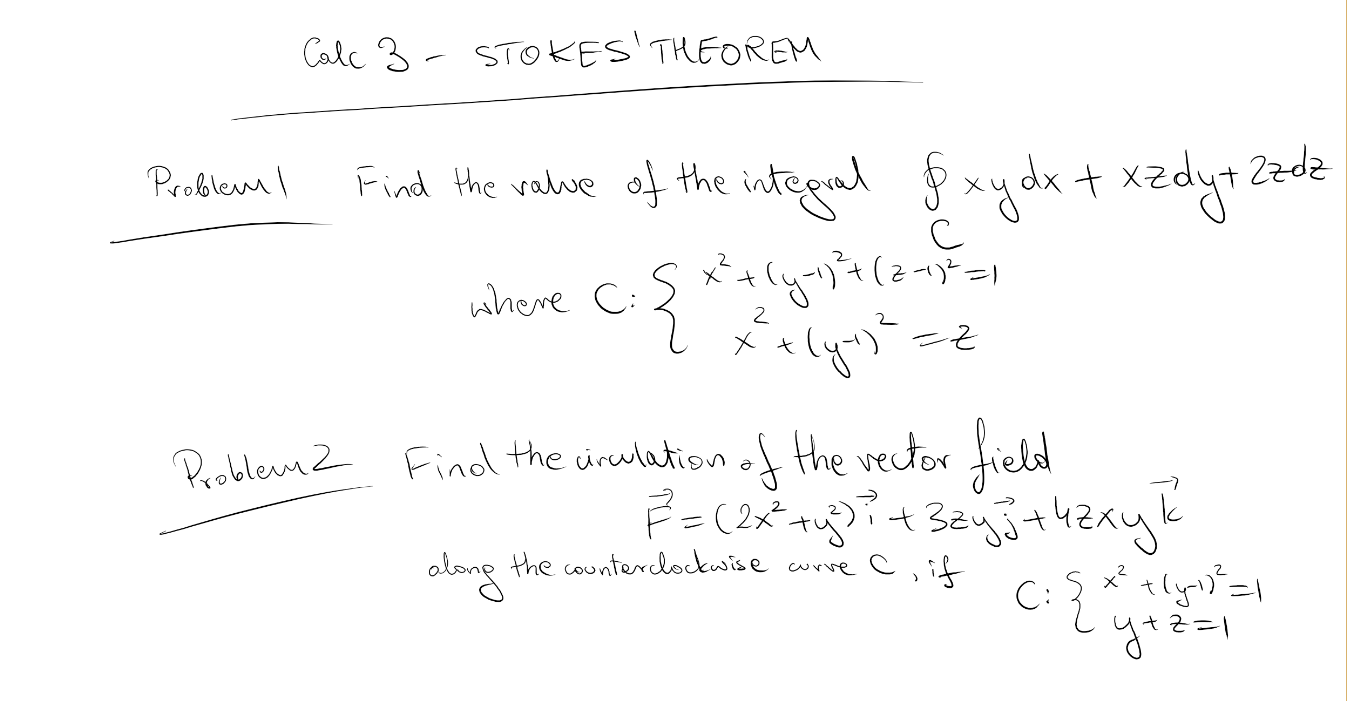 Calc 3 - STOKES' THEOREM
Problem 1 Find the value of the integral ∮ xydx + xzdy + 2zdz
C
where C: { x² + (y-1)² + (z-1)² = 1
x² + (y-1)² = z
Problem 2 Find the circulation of the vector field
F⃗ = (2x² + y²) i⃗ + 3zy j⃗ + 4zxy k⃗
along the counterclockwise curve C, if C: { x² + (y-1)² = 1
y + z = 1